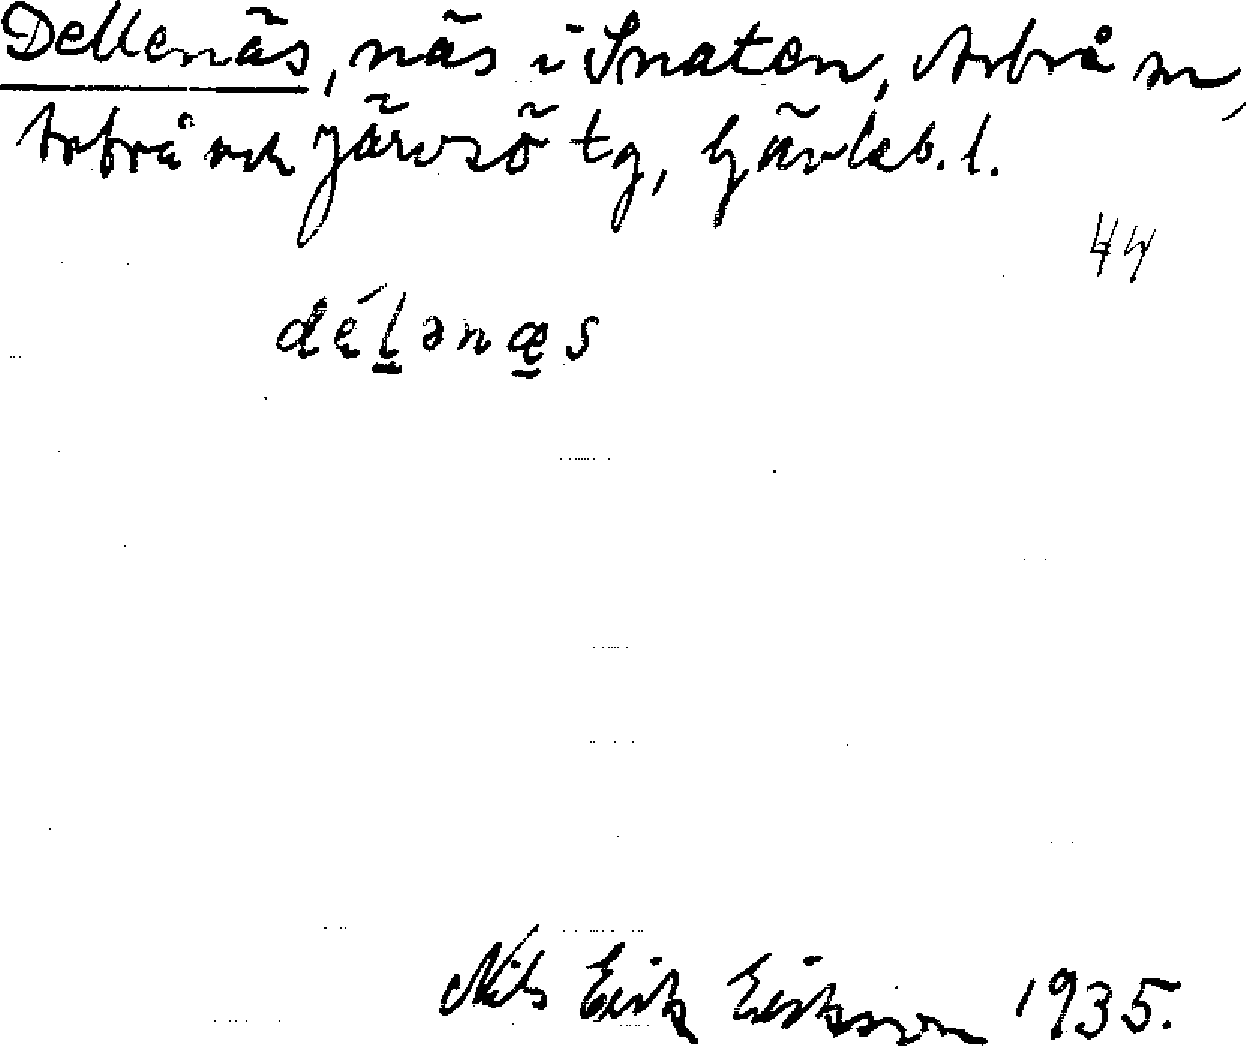 Dellenäs, näs i Snaten, Arbrå sn,
Arbrå och Järvsö tg, Gävleb. l.
44
dέl̲ənæ̲s
Nils Erik Eriksson 1935.